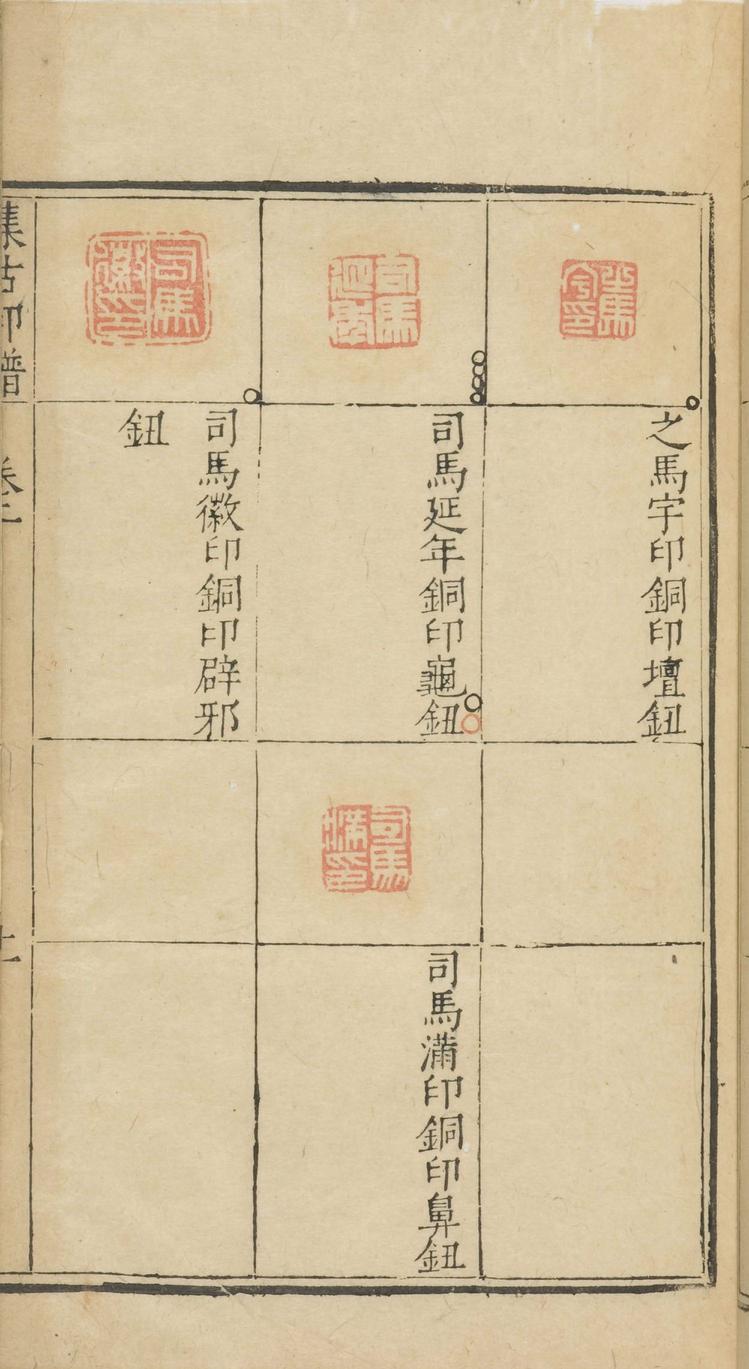 之馬字印銅印壇鈕
司馬延年
司馬延年銅印龜鈕
司馬徽印
司馬徽印銅印辟邪
鈕
司馬滿印
司馬滿印銅印鼻鈕
集古印譜 卷二